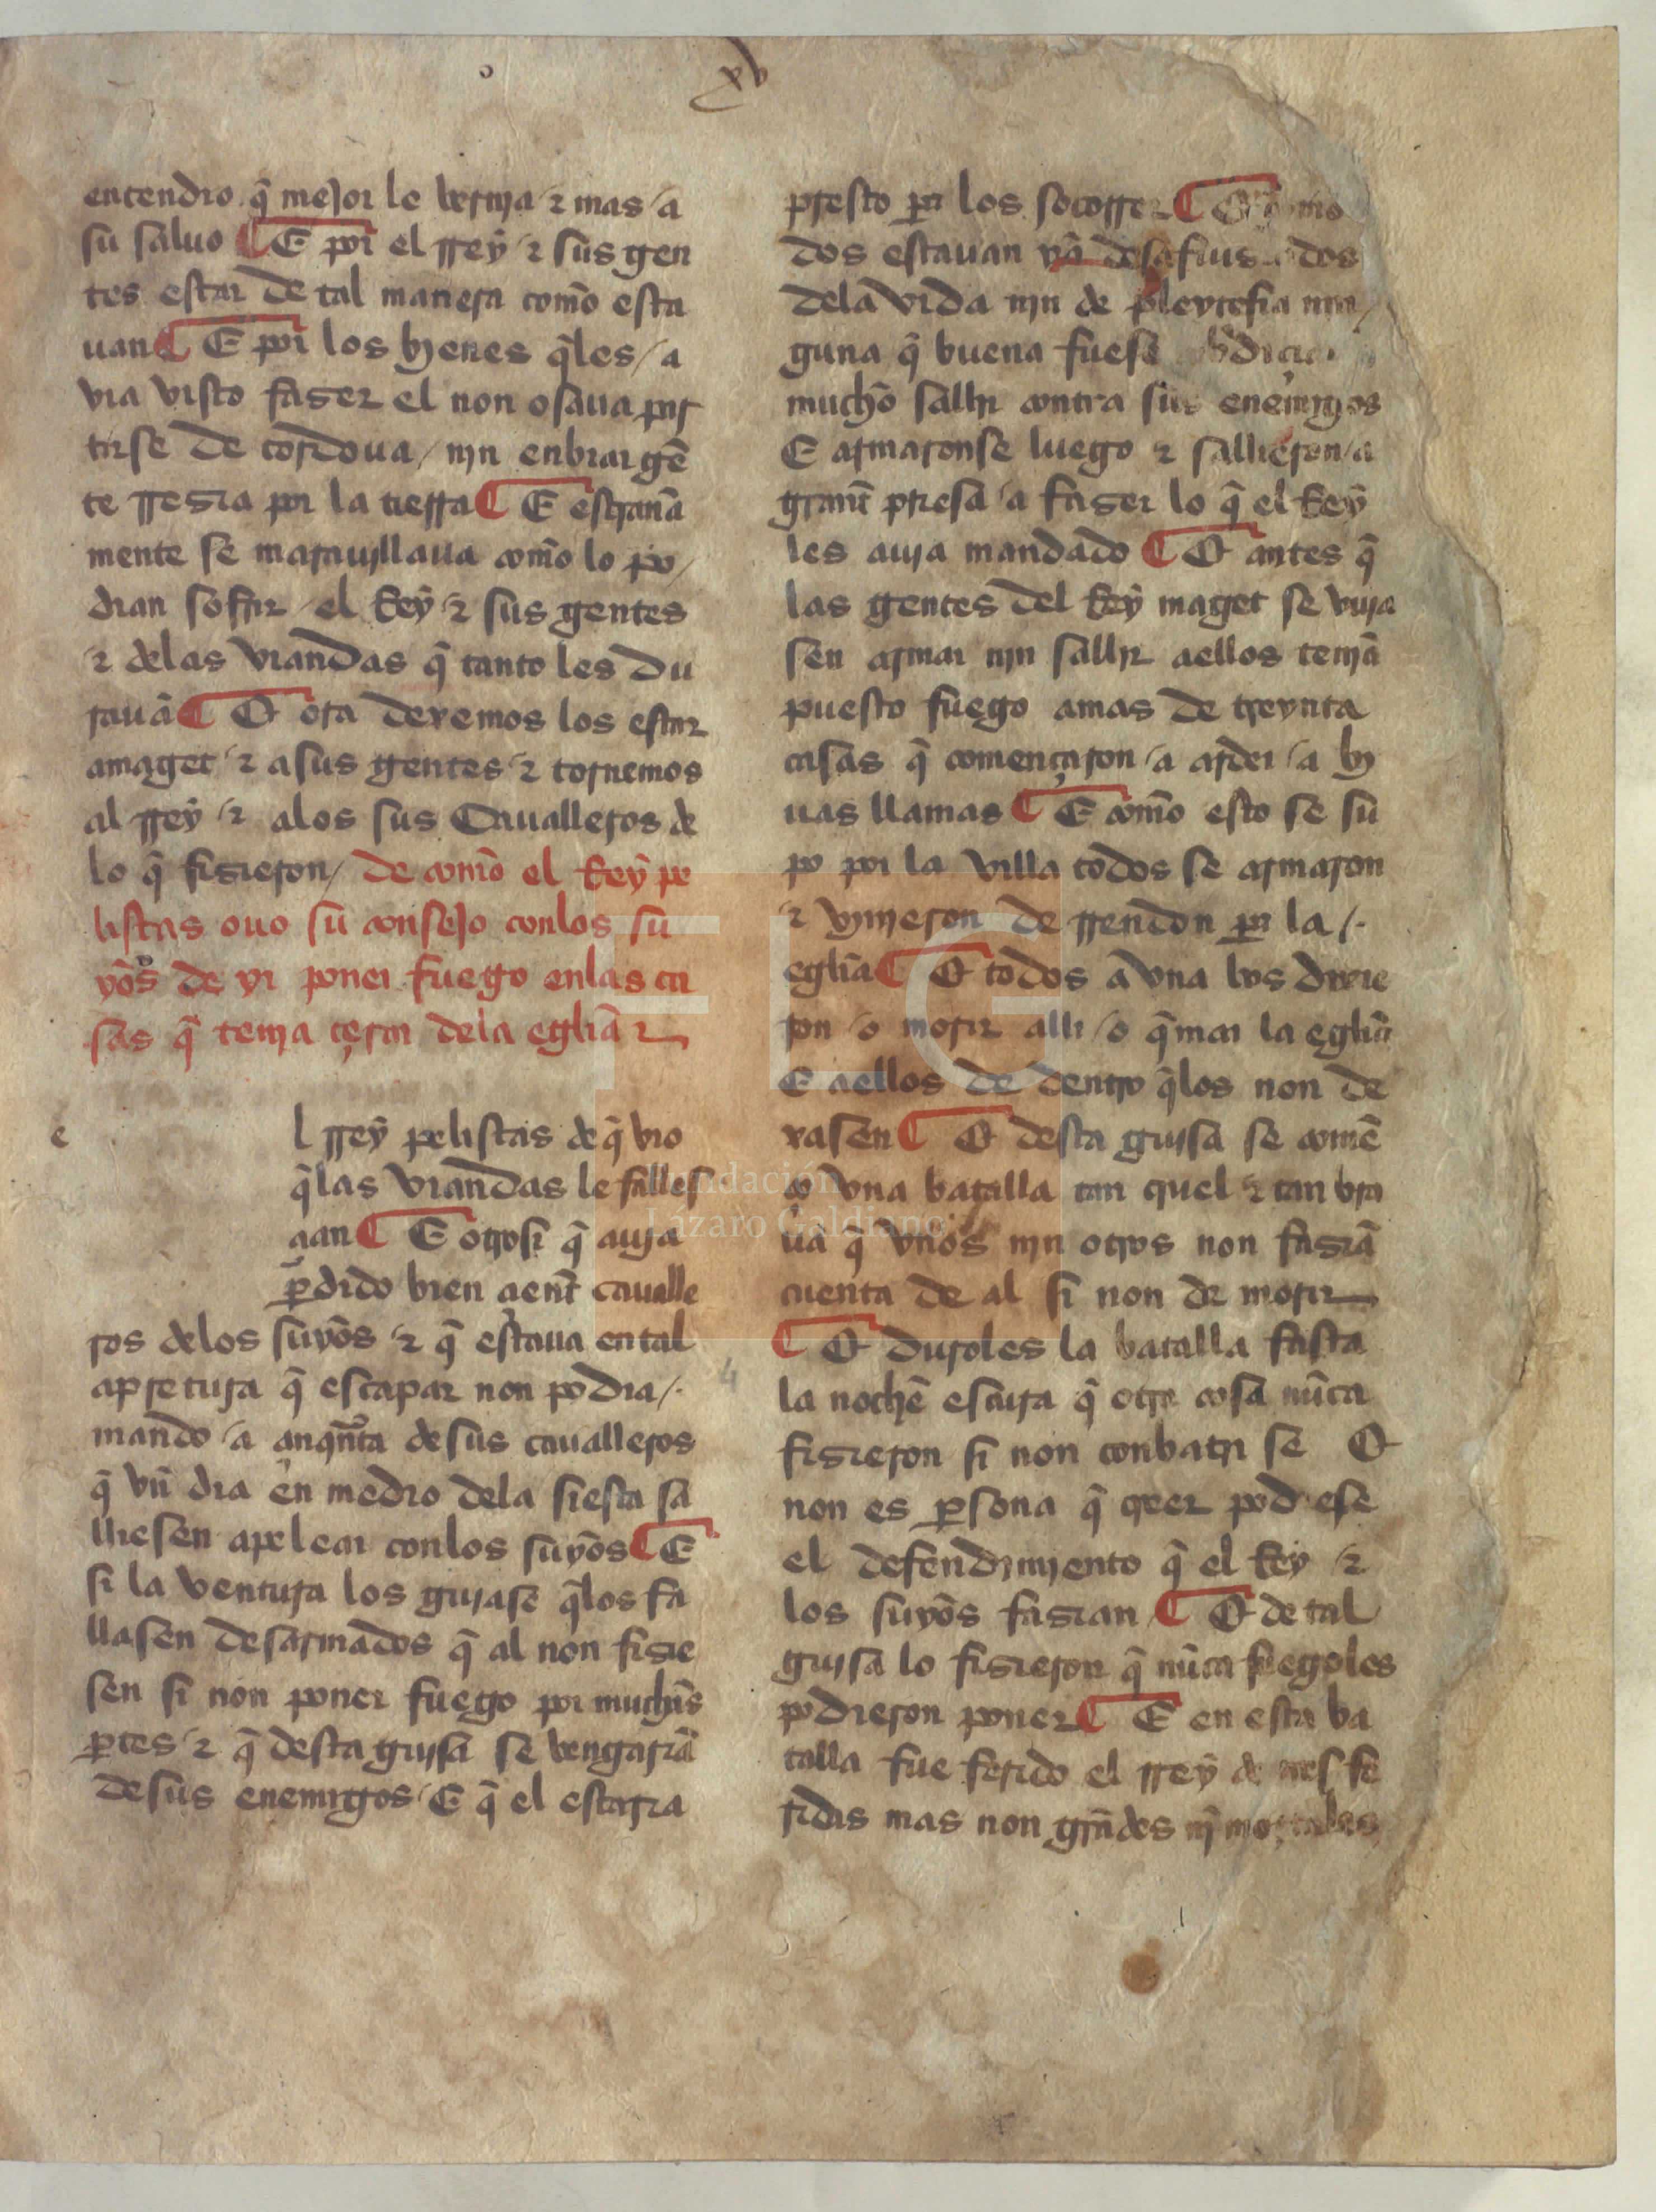 xv
entendio q̃ mejor le verrnja / ⁊ mas / a
su saluo ¶ E por el rrey ⁊ sus gen
tes estar de tal manera com̃o esta
uan ¶ E por los bjenes q̃les / a
via visto faser el non osaua par
tirse de cordoua / njn enbiar gẽ
te rresia por la tierra ¶ E estrana
mente se marauillaua com̃o lo po /
dian sofrir / el Rey ⁊ sus gentes
⁊ delas viandas q̃ tanto les du
rauã ¶ Et ora dexemos los estar
amaget / ⁊ asus gentes / ⁊ tornemos
al rrey / ⁊ alos sus Caualleros de
lo q̃ fisieron / de com̃o el Rey pe
listas ouo su consejo conlos su
yos de yr poner fuego enlas ca
sas q̃ tenja çerca dela eglia ⁊
e
l rrey pelistas de q̃ vio
q̃las viandas le falles
çian ¶ E otrosi q̃ auja
perdido bien çient caualle
ros delos suyos / ⁊ q̃ estaua ental
apretura q̃ escapar non podia / .
mando / a çinqũta desus caualleros
q̃ vn dia en medio dela siesta sa
lliesen apelear conlos suyos ¶ E
si la ventura los guiase q̃los fa
llasen desarmados q̃ al non fisie
sen si non poner fuego por muchas
ptes / ⁊ q̃ desta guisa se vengariã
desus enemigos / E q̃ el estaria
presto pa los socorrer ¶
dos estauan ya
dela vida njn de pleytesia njn /
guna q̃ buena fuese
mucho sallir contra sus enemjgos
E armaronse luego ⁊ sallieron / a
grant priesa / a faser lo q̃ el Rey
les auja mandado ¶ Et antes q̃
las gentes del Rey maget se vuia
sen armar njn sallir aellos tenjã
puesto fuego amas de treynta
casas q̃ començaron / a arder / a bj
uas llamas ¶ E com̃o esto se su
po por la villa todos se armaron
⁊ vjnjeron de rrendon pa la / .
eglia ¶ Et todos a vna bos dixie
ron / o morir alli / o q̃mar la eglia
E aellos de dentro q̃los non de
xasen ¶ Et desta guisa se comẽ
ço vna batalla tan quel ⁊ tan bra
ua q̃ vnos njn otros non fasiã
cuenta de al si non de morir
¶ Et duroles la batalla fasta
la noche escura q̃ otra cosa nũca
fisieron si non conbatir se Et
non es psona q̃ creer podiese
el defendimjento q̃ el Rey / ⁊
los suyos fasian ¶ Et de tal
guisa lo fisieron q̃ nũca fuegoles
podieron poner ¶ E en esta ba
talla fue ferido el rrey de tres fe
ridas mas non grãdes nj̃ mortales
Fundación
Lázaro Galdiano